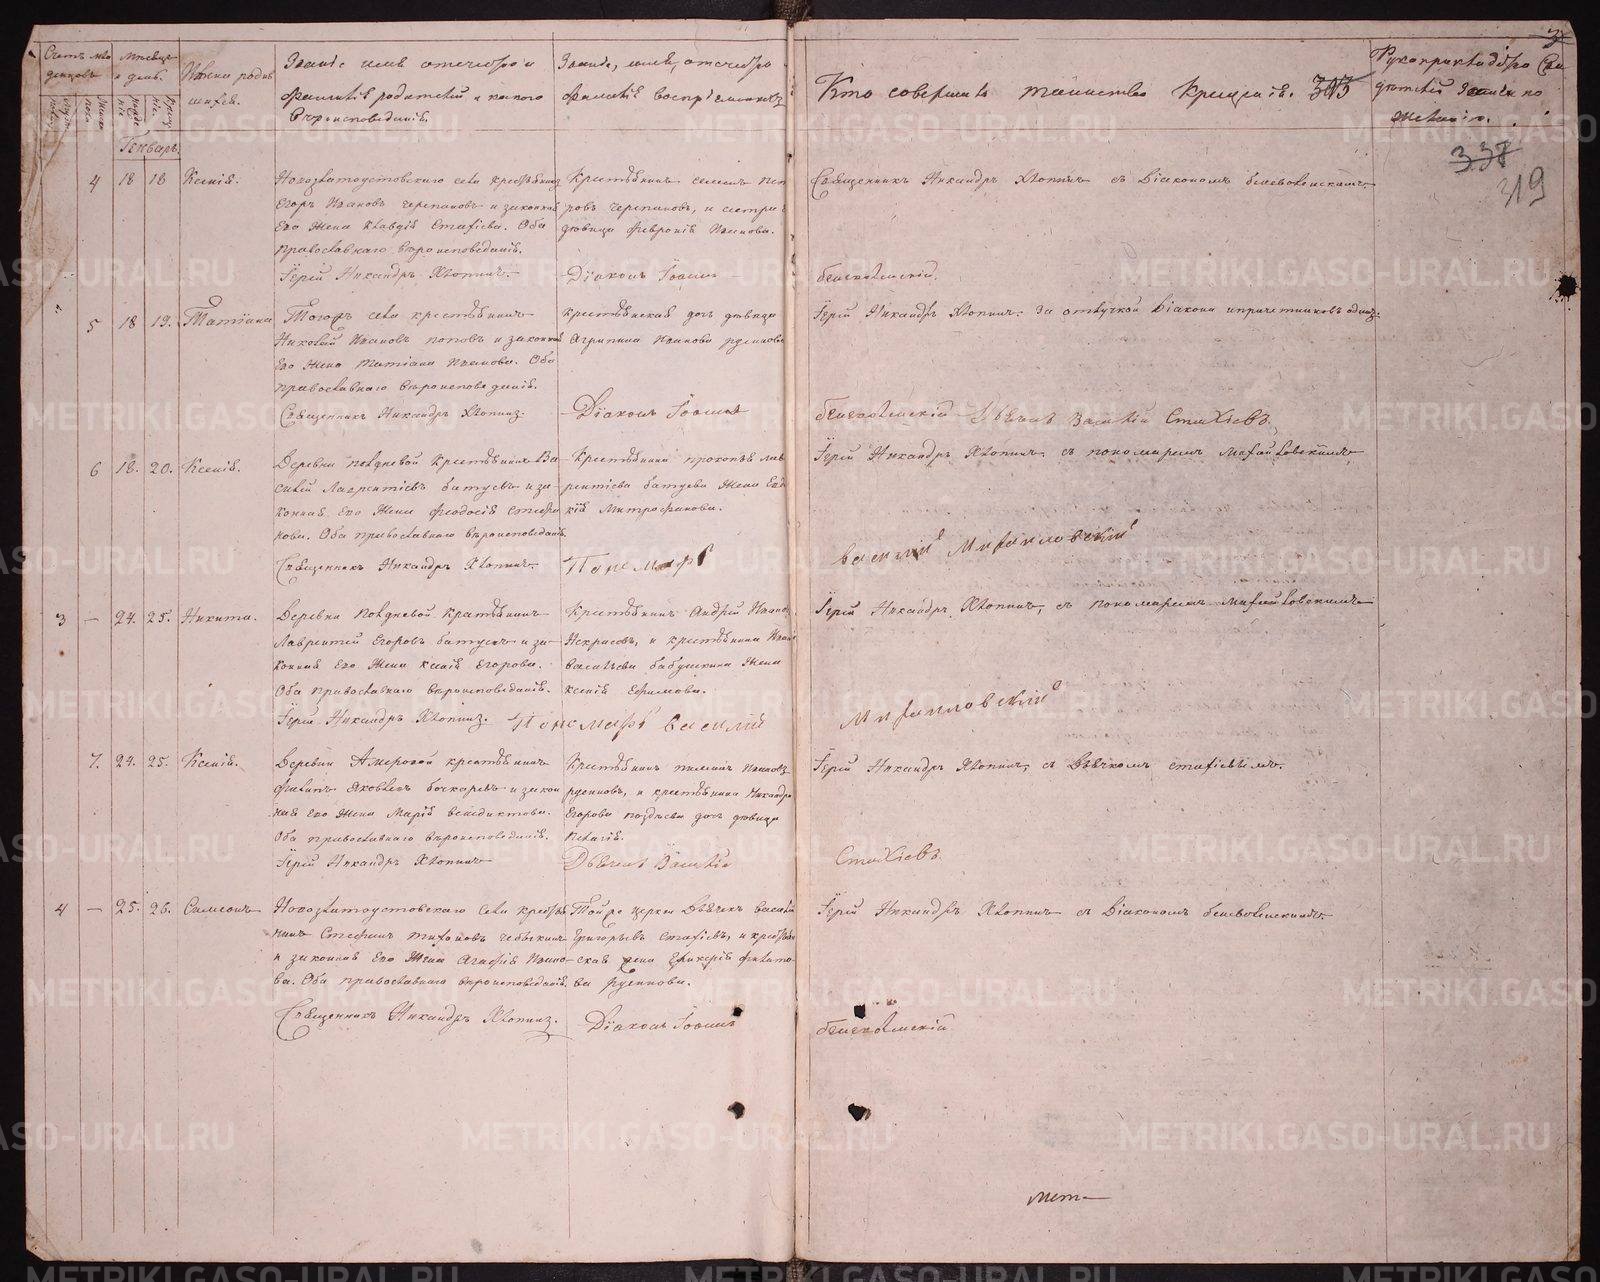 3
Счетъ мла
денцовъ.
Мѣсяцъ
и день.
Имена родив
шихся.
Званiе имя отечество и
фамилiя родителей и какого
вѣроисповѣданiя.
Званiе, имя, отчество
фамилiя воспрiемниковъ
Кто совершалъ таинство крещенiя.
Рукоприкладство сви
дѣтелей записи по
желанiю.
338
319
Генварь.
4 18 18 Ксенiя.
Новозлатоустовскаго села крестьянинъ
Егоръ Ивановъ Черепановъ и законная
Его жена Клавдiя Статiева. Оба
православнаго вѣроисповѣданiя.
Iерей Никандръ Хлопинъ.
Крестьянинъ Семенъ Пет
ровъ Черепановъ, и сестра
дѣвица Февронiя Иванова.
Дiаконъ Iоаннъ
Священникъ Никандръ Хлопинъ съ Дiакономъ
5 18 19. Татiана
Тогожъ села крестьянинъ
Николай Ивановъ Поповъ и законная
Его жена Татiана Иванова. Оба
православнаго вѣроисповеданiя.
Священникъ Никандръ Хлопинъ.
Крестьянская дочь дѣвица
Агрипина Иванова
Дiаконъ Iоаннъ
Iерей Никандръ Хлопинъ. За отлучкой Дiакона и причетниковъ одинъ.
Дьячекъ Василiй Стахiевъ
6 18. 20. Ксенiя.
Деревни Полдневой крестьянинъ Ва
силiй Лаврентiевъ Батуевъ и за
конная Его жена Феодосiя Стефа
нова. Оба православнаго вѣроисповѣданiя.
Священникъ Никандръ Хлопинъ.
Крестьянина Прокопья Лав
рентiева Батуева жена Евд
кiя Митрофанова.
Понамарь
Iерей Никандръ Хлопинъ съ пономаремъ Михайловскимъ
Василiй Михаиловскiй
3 — 24. 25. Никита.
Деревни Полдневой крестьянинъ
Лаврентiй Егоровъ Батуевъ и за
конная Его жена Ксенiя Егорова.
Оба православнаго вѣроисповеданiя.
Iерей Никандръ Хлопинъ.
Крестьянинъ Андрей Иванов
Некрасовъ, и крестьянина Ивана
Васильева Бабушкина жена
Ксенiя Ефимова.
Понамарь Василiй
Iерей Никандръ Хлопинъ, съ пономаремъ Михайловскимъ
Михаиловскiй
7. 24. 25. Ксенiя.
Деревни крестьянинъ
Филипъ Яковлевъ Бочкаревъ и закон
ная Его жена Марiя Венедиктова.
Оба православнаго вѣроисповеданiя.
Iерей Никандръ Хлопинъ
Крестьянинъ Пименъ Ивановъ
Русиновъ, и крестьянина Никандра
Егорова Поздѣева дочь дѣвица
Пелагiя.
Дьячекъ Василiй
Iерей Никандръ Хлопинъ, съ Дьячкомъ Статiевымъ.
Стахiевъ.
4 — 25. 26. Симеонъ
Новозлатоустовскаго села крестья
нинъ Стефанъ Тихоновъ Чебыкинъ
и законная Его жена Агафiя Ивано
ва. Оба православнаго вѣроисповеданiя.
Священникъ Никандръ Хлопинъ.
Той же церкви Дьячекъ Василiй
Григорьевъ Статiевъ, и крестьян
ская жена Гликерiя Филипо
ва Русинова.
Дiаконъ Iоаннъ
Iерей Никандръ Хлопинъ съ Дiакономъ
METRIKI.GASO-URAL.RU